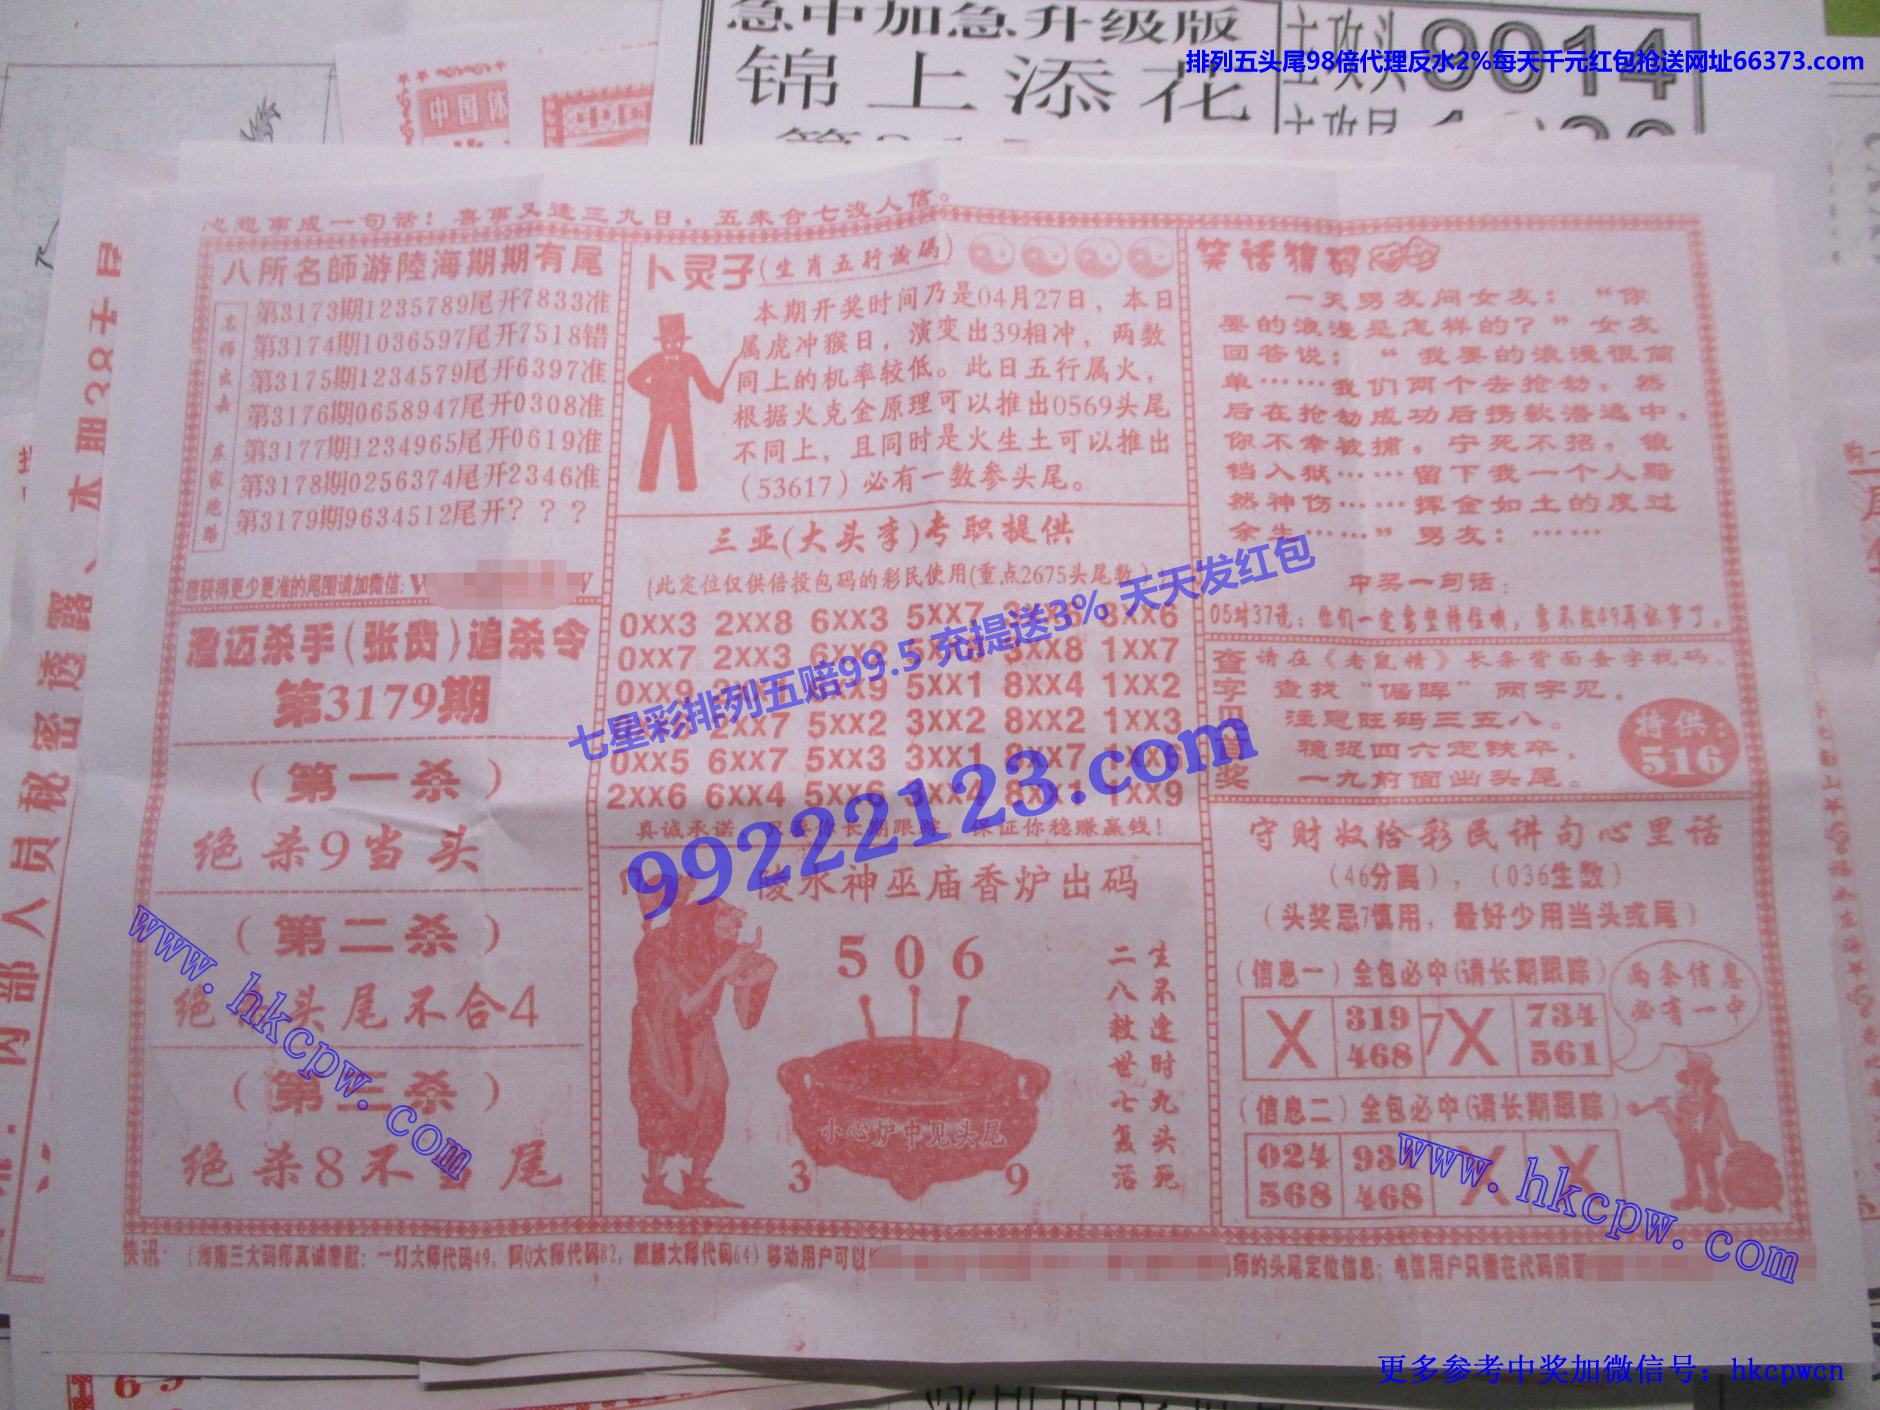 急中加急升级版
锦上添花
主攻头 9014
排列五头尾98倍代理反水2%每天千元红包抢送网址66373.com
中国体
心想事成一句话：喜事又逢三九日，五来合七没人信。
八所名師游陸海期期有尾
名师出品
第3173期1235789尾开7833准
第3174期1036597尾开7518错
第3175期1234579尾开6397准
第3176期0658947尾开0308准
第3177期1234965尾开0619准
第3178期0256374尾开2346准
第3179期9634512尾开？？？
想获得更少更准的尾围请加微信:
澄迈杀手(张贵)追杀令
第3179期
(第一杀)
绝杀9当头
(第二杀)
头尾不合4
(第三杀)
绝杀8不当尾
卜灵子(生肖五行论码)
本期开奖时间乃是04月27日，本日
属虎冲猴日，演变出39相冲，两数
同上的机率较低。此日五行属火，
根据火克金原理可以推出0569头尾
不同上，且同时是火生土可以推出
(53617)必有一数参头尾。
三亚(大头李)专职提供
(此定位仅供倍投包码的彩民使用(重点2675头尾数)
0XX3 2XX8 6XX3 5XX7 8XX6
0XX7 2XX3 3XX8 1XX7
0XX9 5XX1 8XX4 1XX2
2XX7 5XX2 3XX2 8XX2 1XX3
0XX5 6XX7 5XX3 3XX1 8XX7 1XX6
2XX6 6XX4 5XX6 3XX4 8XX1 1XX9
真诚承诺 只要你长期跟踪，保证你稳赚赢钱！
陵水神巫庙香炉出码
506
小心炉中见头尾
3 9
生不逢时九头死
二八救世七复活
笑话猜码
一天男友问女友：“你
要的浪漫是怎样的？”女友
回答说：“我要的浪漫很简
单……我们两个去抢劫，然
后在抢劫成功后携款潜逃中，
你不幸被捕，宁死不招，锒
铛入狱……留下我一个人黯
然神伤……挥金如土的度过
余生……”男友：……
中奖一句话：
05对37说：你们一定要坚持住哦，要不然49再说事了。
查字
请在《老鼠精》长条背面查字找码。
查找“倔晖”两字见，
注意旺码三五八。
稳捉四六定铁卒，
一九前面出头尾。
特供：
516
守财奴给彩民讲句心里话
(46分离)，(036生数)
(头奖忌7慎用，最好少用当头或尾)
(信息一)全包必中(请长期跟踪)
X 319 7X 734
468 561
两条信息
必有一中
(信息二)全包必中(请长期跟踪)
024 X X
568 468
快讯：(海南三大码师真诚奉献：一灯大师代码49，阿Q大师代码82，麒麟大师代码64)移动用户可以
师的头尾定位信息；电信用户只需在代码前面
七星彩排列五赔99.5 充提送3% 天天发红包
99222123.com
www.hkcpw.com
www.hkcpw.com
更多参考中奖加微信号：hkcpwcn